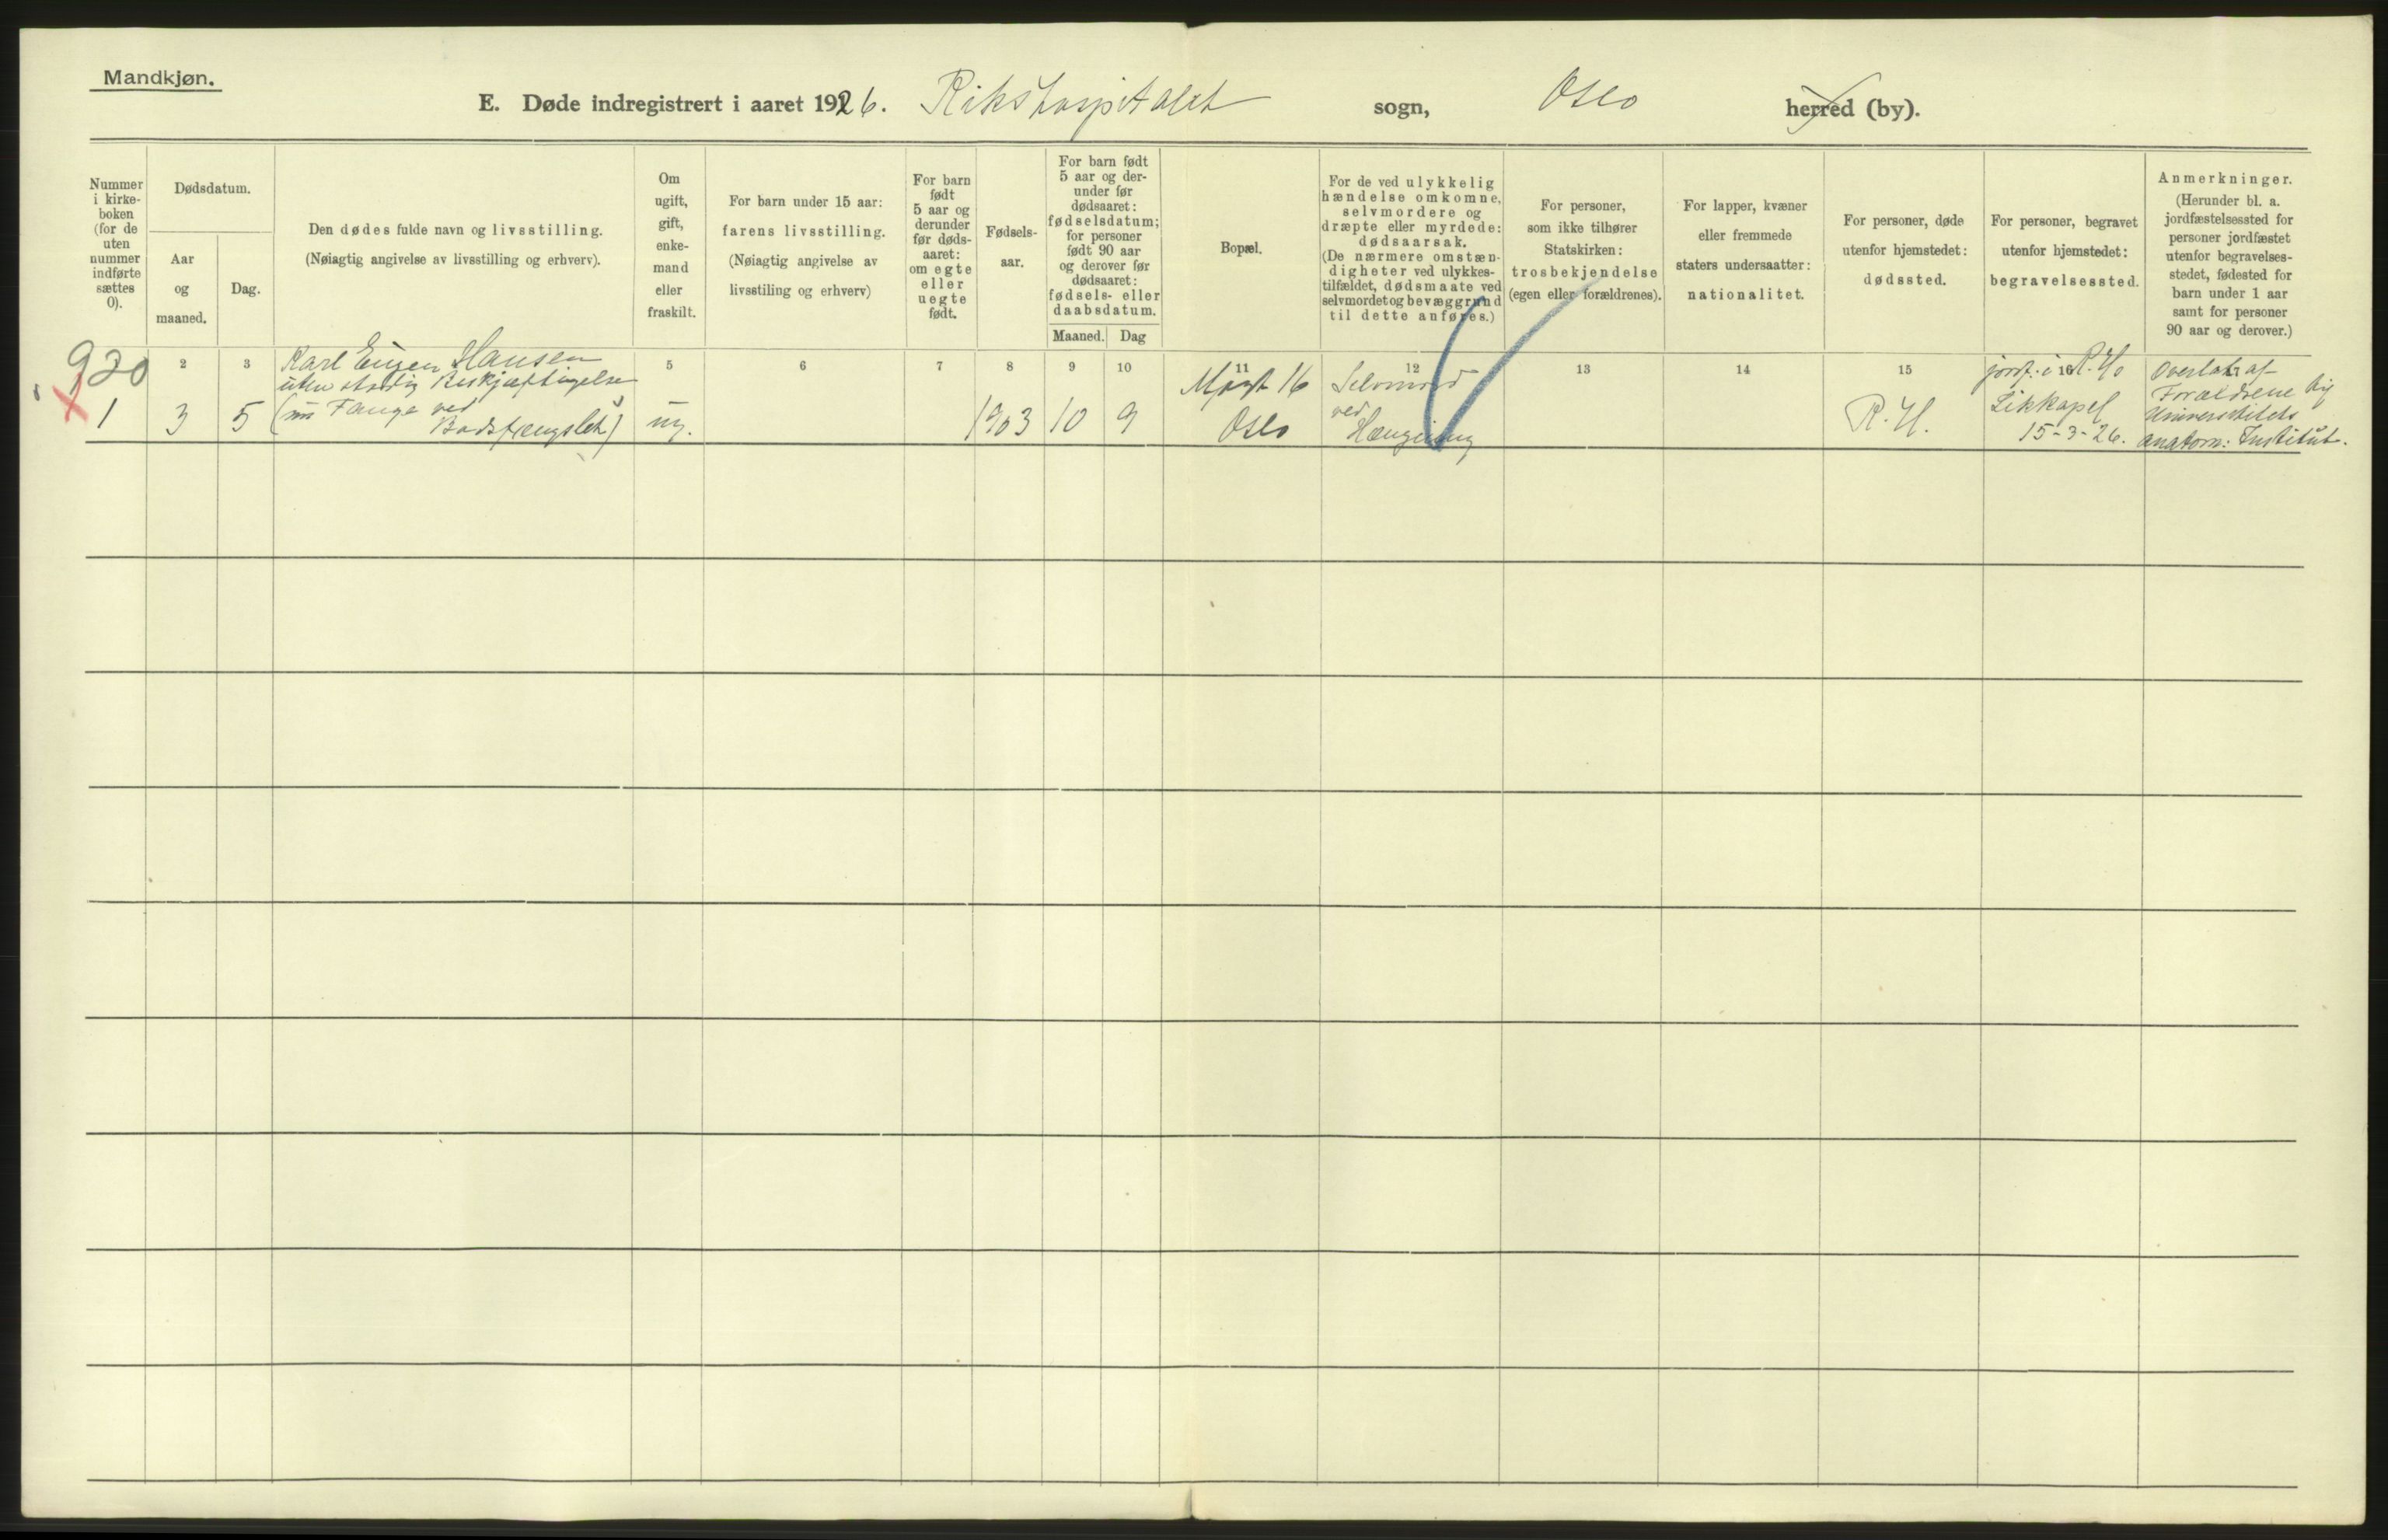 Mandkjøn.
E. Døde indregistrert i aaret 1926. Rikshospitalet sogn, Oslo herred (by).
Nummer
i kirke-
boken
(for de
uten
nummer
indførte
sættes
0).
Dødsdatum.
Aar
og
maaned.
Dag.
Den dødes fulde navn og livsstilling.
(Nøiagtig angivelse av livsstilling og erhverv).
Om
ugift,
gift,
enke-
mand
eller
fraskilt.
For barn under 15 aar:
farens livsstilling.
(Nøiagtig angivelse av
livsstiling og erhverv)
For barn
født
5 aar og
derunder
før døds-
aaret:
om egte
eller
uegte
født.
Fødsels-
aar.
For barn født
5 aar og der-
under før
dødsaaret:
fødselsdatum;
for personer
født 90 aar
og derover før
dødsaaret:
fødsels- eller
daabsdatum.
Maaned. Dag
Bopæl.
For de ved ulykkelig
hændelse omkomne,
selvmordere og
dræpte eller myrdede:
dødsaarsak.
(De nærmere omstæn-
digheter ved ulykkes-
tilfældet, dødsmaate ved
selvmordet og bevæggrund
til dette anføres.)
For personer,
som ikke tilhører
Statskirken:
trosbekjendelse
(egen eller forældrenes).
For lapper, kvæner
eller fremmede
staters undersaatter:
nationalitet.
For personer, døde
utenfor hjemstedet:
dødssted.
For personer, begravet
utenfor hjemstedet:
begravelsessted.
Anmerkninger.
(Herunder bl. a.
jordfæstelsessted for
personer jordfæstet
utenfor begravelses-
stedet, fødested for
barn under 1 aar
samt for personer
90 aar og derover.)
2 3 5 6 7 8 9 10 11 12 13 14 15 16
920
1
3
5
Karl Eugen Hansen
uten stadig Beskjæftigelse
(nu Fange ved
Bodsfængslet)
ug.
1903
10
9
16
Oslo
Selvmord
ved
Hængning
R. H.
jordf. i R. H.
Likkapel
15-3-26.
Overlatt af
Forældrene
Universitets
anatom. Institut.